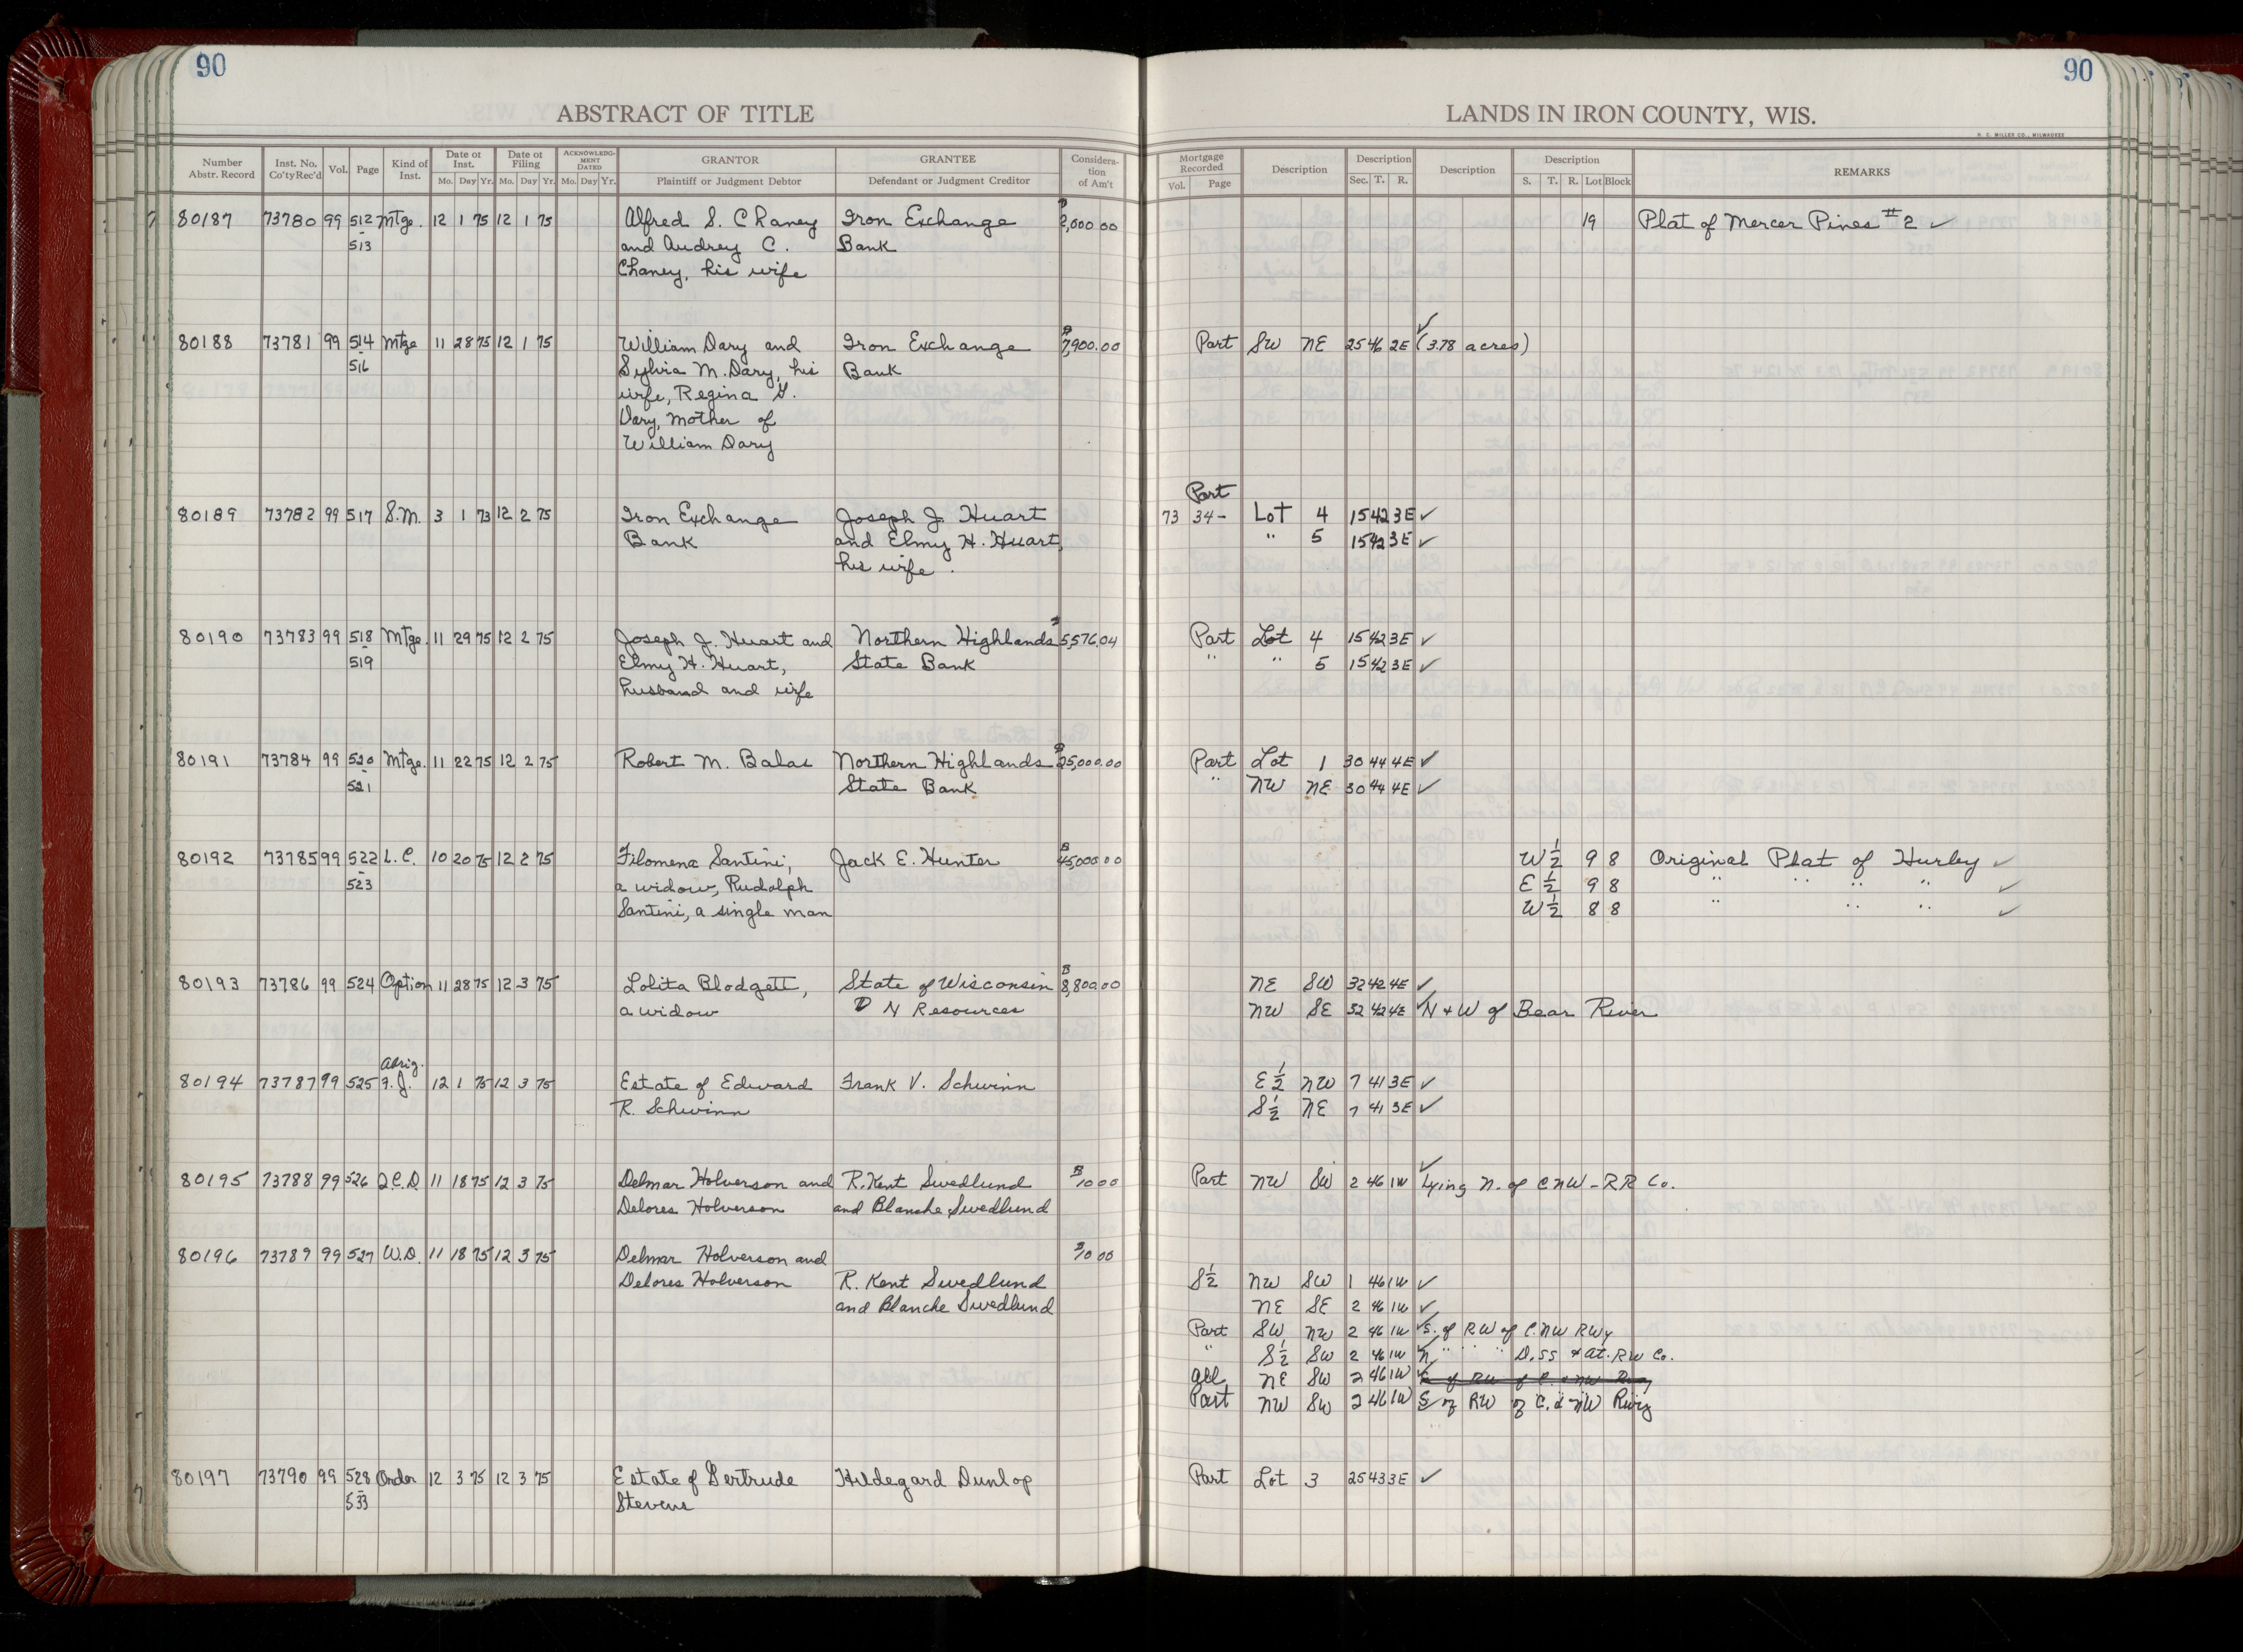 90
90
ABSTRACT OF TITLE
LANDS IN IRON COUNTY, WIS.
H. C. MILLER CO., MILWAUKEE
Number Abstr. Record Inst. No. Co'ty Rec'd Vol. Page Kind of Inst. Date of Inst. Mo. Day Yr. Date of Filing Mo. Day Yr. ACKNOWLEDGMENT DATED Mo. Day Yr. GRANTOR Plaintiff or Judgment Debtor GRANTEE Defendant or Judgment Creditor Consideration of Am't Mortgage Recorded Vol. Page Description Description Sec. T. R. Description Description S. T. R. Lot Block REMARKS
80187 73780 99 512 Mtge. 12 1 75 12 1 75 Alfred S. Chaney Iron Exchange $2,000.00 19 Plat of Mercer Pines #2 ✓
- 513 and Audrey C. Bank
Chaney, his wife
80188 73781 99 514 Mtge 11 28 75 12 1 75 William Dary and Iron Exchange $7,900.00 Part SW NE 25 46 2E ✓ (3.78 acres)
- 516 Sylvia M. Dary, his Bank
wife, Regina G.
Dary, Mother of
William Dary
Part
80189 73782 99 517 S.M. 3 1 73 12 2 75 Iron Exchange Joseph J. Huart 73 34- Lot 4 15 42 3E ✓
Bank and Elmy H. Huart, " 5 15 42 3E ✓
his wife.
80190 73783 99 518 Mtge. 11 29 75 12 2 75 Joseph J. Huart and Northern Highlands $5,576.04 Part Lot 4 15 42 3E ✓
- 519 Elmy H. Huart, State Bank " " 5 15 42 3E ✓
husband and wife
80191 73784 99 520 Mtge. 11 22 75 12 2 75 Robert M. Balac Northern Highlands $25,000.00 Part Lot 1 30 44 4E ✓
- 521 State Bank " NW NE 30 44 4E ✓
80192 73785 99 522 L.C. 10 20 75 12 2 75 Filomena Santini, Jack E. Hunter $45,000.00 W ½ 9 8 Original Plat of Hurley ✓
- 523 a widow, Rudolph E ½ 9 8 " " " " ✓
Santini, a single man W ½ 8 8 " " " ✓
80193 73786 99 524 Option 11 28 75 12 3 75 Lolita Blodgett, State of Wisconsin $8,800.00 NE SW 32 42 4E ✓
a widow D N Resources NW SE 32 42 4E ✓ N + W of Bear River
Abrig.
80194 73787 99 525 F.J. 12 1 75 12 3 75 Estate of Edward Frank V. Schwinn E ½ NW 7 41 3E ✓
R. Schwinn S ½ NE 7 41 3E ✓
80195 73788 99 526 Q.C.D. 11 18 75 12 3 75 Delmar Holverson and R. Kent Swedlund $10 00 Part NW SW 2 46 1W ✓ Lying N. of CNW-RR Co.
Delores Holverson and Blanche Swedlund
80196 73789 99 527 W.D. 11 18 75 12 3 75 Delmar Holverson and $10 00
Delores Holverson R. Kent Swedlund S ½ NW SW 1 46 1W ✓
and Blanche Swedlund NE SE 2 46 1W ✓
Part SW NW 2 46 1W ✓ S. of RW of C.NW RWy
" S ½ SW 2 46 1W ✓ N. " " " D.SS & At. RW Co.
All NE SW 2 46 1W ✓ S of RW of C. & NW Rwy
Part NW SW 2 46 1W S of RW of C. & NW Rwy
80197 73790 99 528 Order 12 3 75 12 3 75 Estate of Gertrude Hildegard Dunlop Part Lot 3 25 43 3E ✓
- 533 Stevens